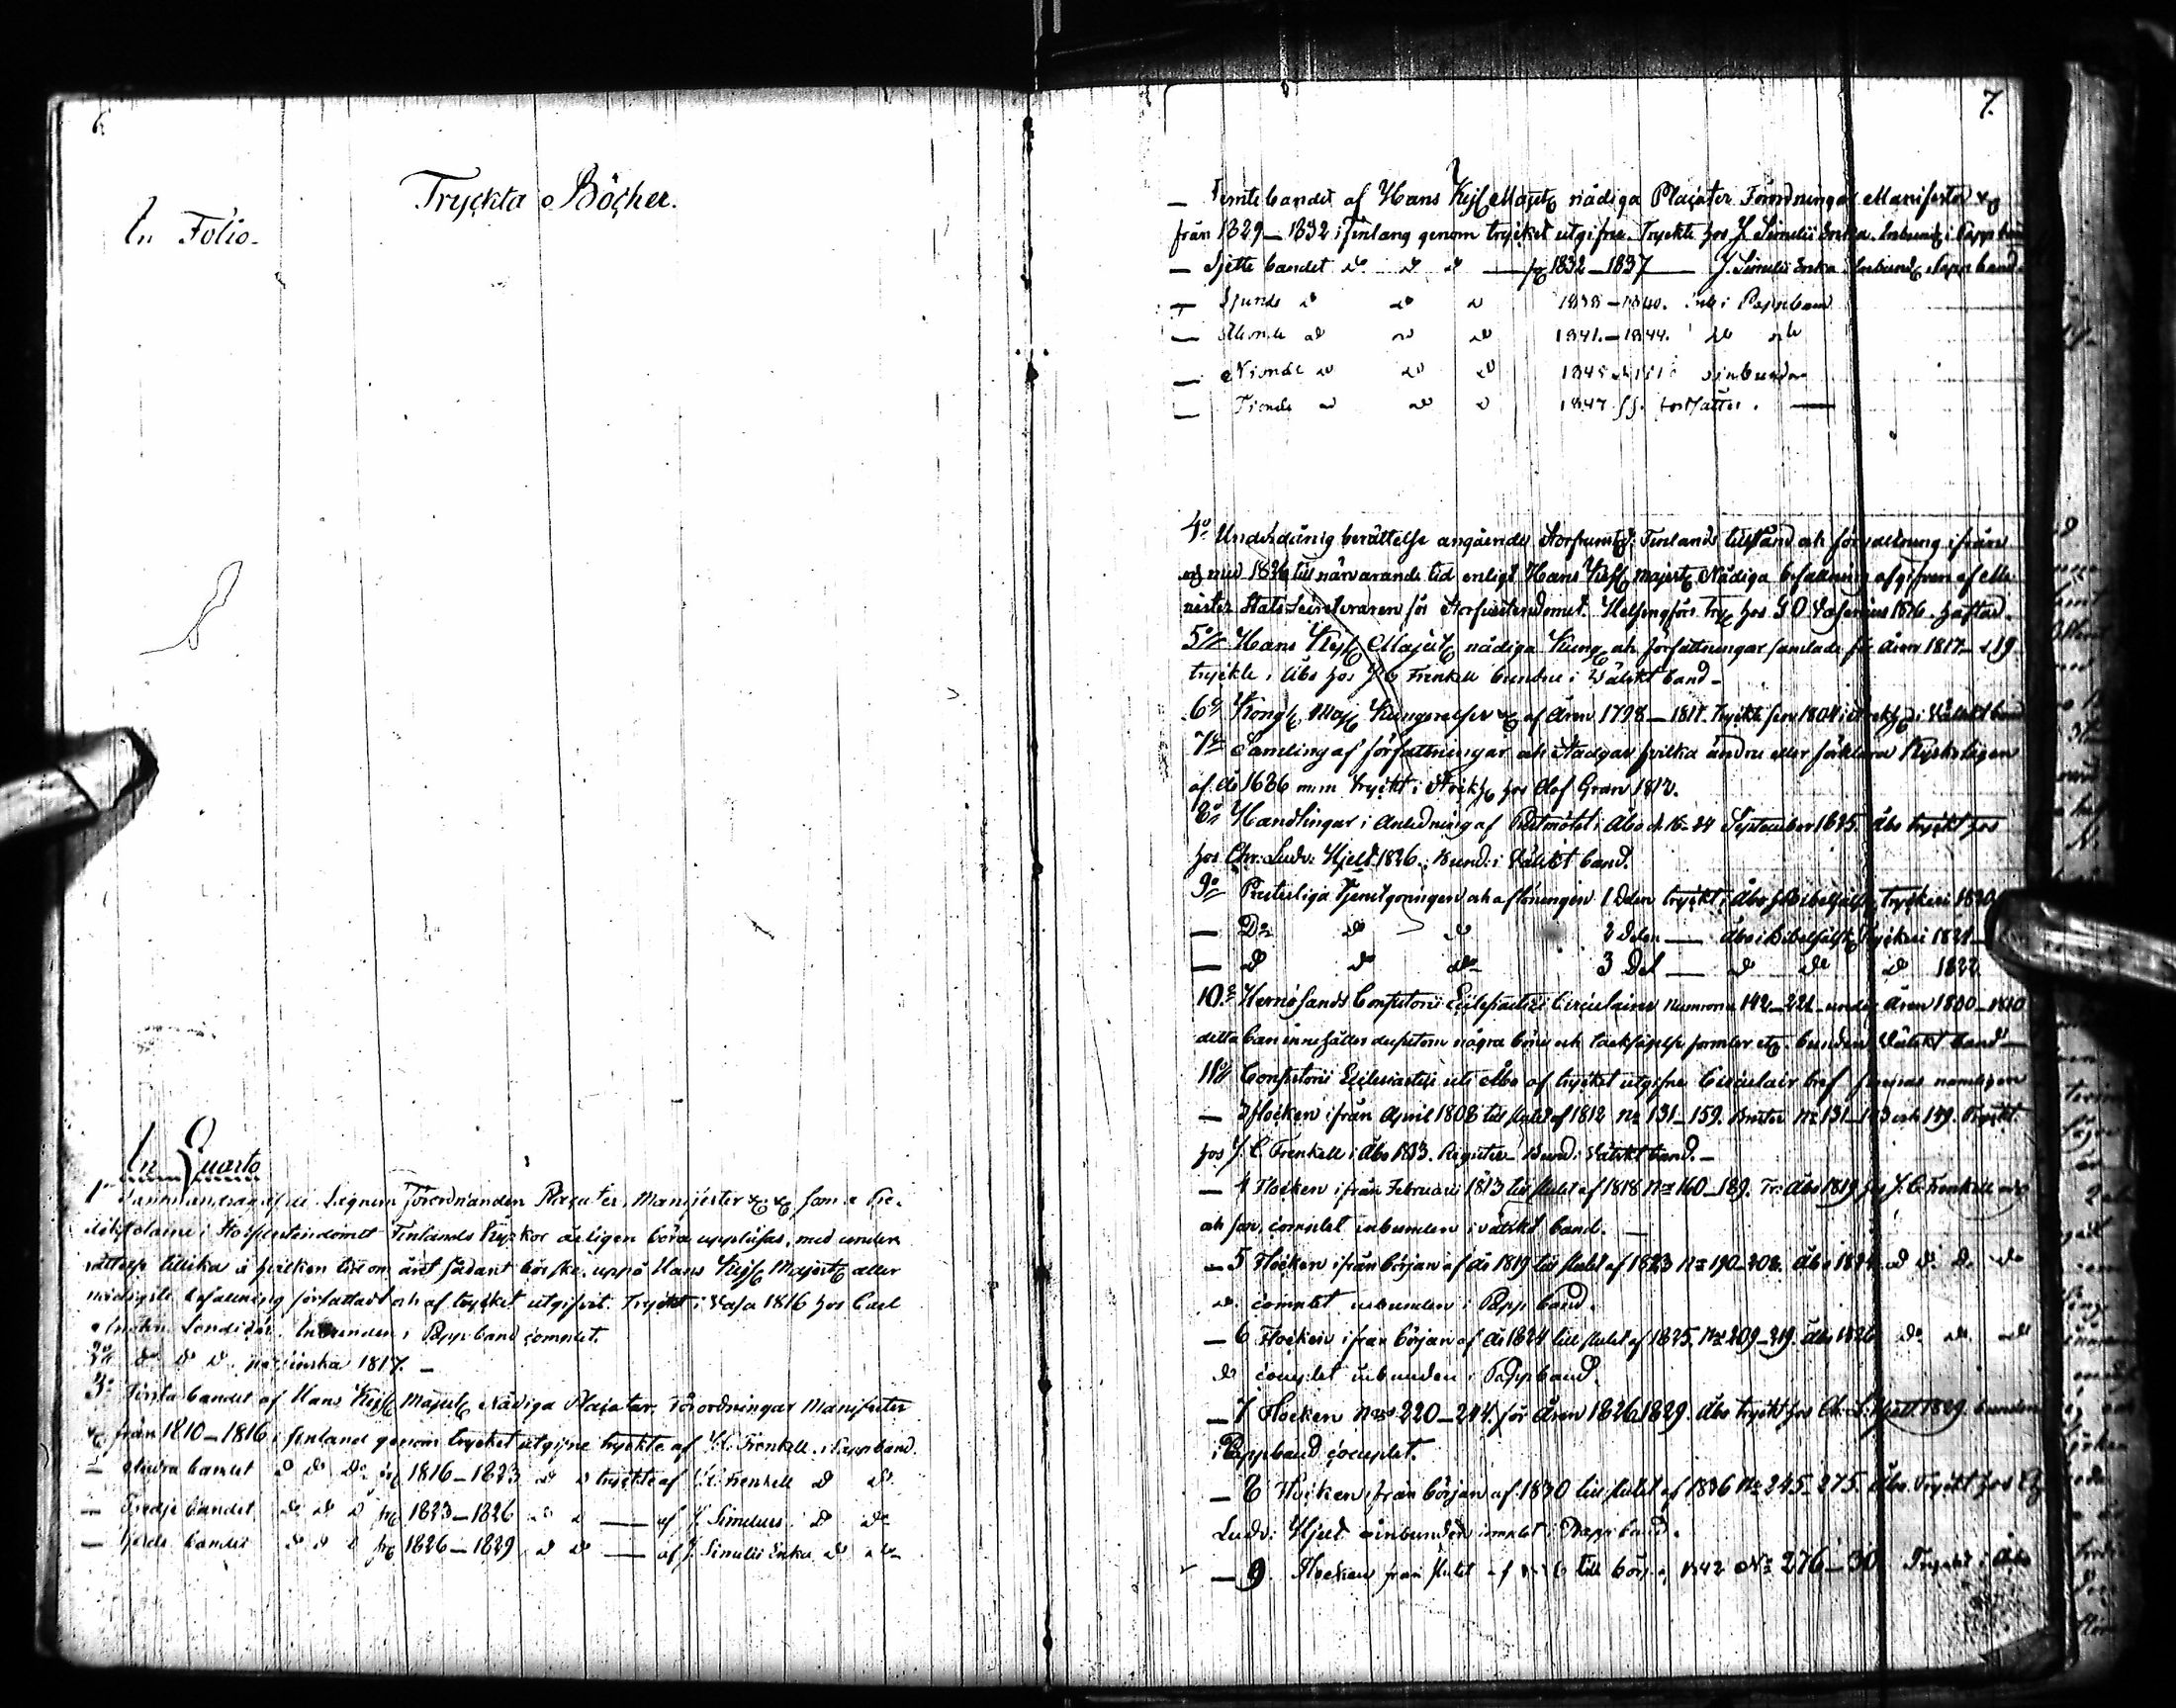 6.
Tryckta Böcker.
In Folio.
In Quarto
1º Sammandrag af de Förordnanden Placater, Manifester &c &c som a Pre-
dikstolarne i Storfurstendömet Finlands Kyrkor årligen böra uppläsas, med under
rättelse tillika å hvilken tid om året sådant bör ske, uppå Hans Kejs Majests aller
nådigste befallning författadt och af trycket utgifvit. Tryckt i Vasa 1816 hos Carl
Londicer. Inbunden i Pappband complet.
2º dº dº dº finska 1817. —
3º Första bandet af Hans Kejs Majests Nådiga Placater, Förordningar Manifester
&c från 1810–1816 i Finland genom trycket utgifne tryckte af J.C. Frenkell. i Pappband.
— Andra bandet dº dº dº fr 1816–1823 dº dº tryckte af J.C. Frenkell dº dº
— Tredje bandet dº dº dº fr 1823–1826 dº dº — af J. Simelius dº dº
— Fjerde bandet dº dº dº fr 1826–1829 dº dº — af J. Simelii Enka dº dº
7.
— Femte bandet af Hans Kejs Majests nådiga Placater Förordningar Manifester &c
från 1829–1832 i Finland genom trycket utgifne. Tryckte hos J. Simelii Enka. Inbundt i Pappband
— Sjette bandet dº dº dº — fr 1832–1837 — J. Simelii Enka Inbund Papp band.
— Sjunde dº dº dº 1838–1840. Inb i Pappband
— Åttonde dº dº dº 1841.–1844. dº dº
— Nionde dº dº dº 1845 inbunden
— Tionde dº dº dº 1847 ff. fortsättes. —
4º Underdånig berättelse angående Storfurstd: Finlands tillstånd och förvaltning ifrån
och med 1826 till närvarande tid enligt Hans Kejs Majests Nådiga befallning afgifven af Mi-
nister Stats Secreteraren för Storfurstendömet. Helsingfors tryc hos G O Wasenius 1836. häftad.
5º Hans Kejs Majests nådiga Kung och författningar samlade för åren 1817–19
tryckte i Åbo hos J C Frenkell bundne i Wälskt band –
6º Kongl Maj Kungörelser &c af åren 1798–1817. tryckte sen 1804 i Stockh i Wälskt band
7º Samling af författningar och Stadgar hvilka ändra eller förklara Kyrkolagen
af år 1686 m.m tryckt i Stockh hos Olof Gran 1812.
8º Handlingar i Anledning af Prestmötet i Åbo d. 16–24 September 1825. Åbo tryckt hos
hos Chr: Ludv: Hjelt. 1826. Bund: i Wälskt band.
9º Presterliga Tjenstgöringen och aflöningen 1 Delen tryckt i Åbo Bibelsälsk Tryckeri 1820
— Dº dº dº 2 Delen — Åbo i Bibelsälsk Tryckeri 1821 –
— dº dº dº 3 Del — dº dº dº 1822
10º Hernösands Consistorii Ecclesiastici Circulairer Numrorna 142–221 under åren 1800–1810
detta ban innehåller dessutom några böne och tacksägelse formler etc. bunden Wälskt band —
11º Consistorii Ecclesiastici uti Åbo af trycket utgifne Circulair bref finnas nämligen
— 3 Häcken ifrån April 1808 till slutet af 1812 Nº 131–159. Brister Nº 131–143 och 149. Tryckt
hos J. C. Frenkell i Åbo 1813. Register – Bund i Wälskt band. –
— 4 Häcken ifrån Februarii 1813 till slutet af 1818 Nº 160–189. Tr: Åbo 1819 hos J. C. Frenkell
och son, complet inbunden i välskt band. —
— 5 Häcken ifrån början af år 1819 till slutet af 1823 Nº 190–208. Åbo 1824 dº dº dº dº
dº complet inbunden i Papp band.
— 6 Häcken ifrån början af år 1824 till slutet af 1825. Nº 209–219. Åbo 1826 dº dº dº
dº complet inbunden i Pappband.
— 7 Häcken Nº 220–244. för åren 1826 1829. Åbo tryckt hos Ch. L. Hjelt 1829. bunden
i Pappband complet.
— 8 Häcken, från början af 1830 till slutet af 1836 Nº 245–275. Åbo. Tryckt hos Ch
Ludv: Hjelt inbunden complet i Pappband.
— 9. Häcken från slutet af 1836 till börj af 1842 Nº 276–30 Tryckt i Åbo